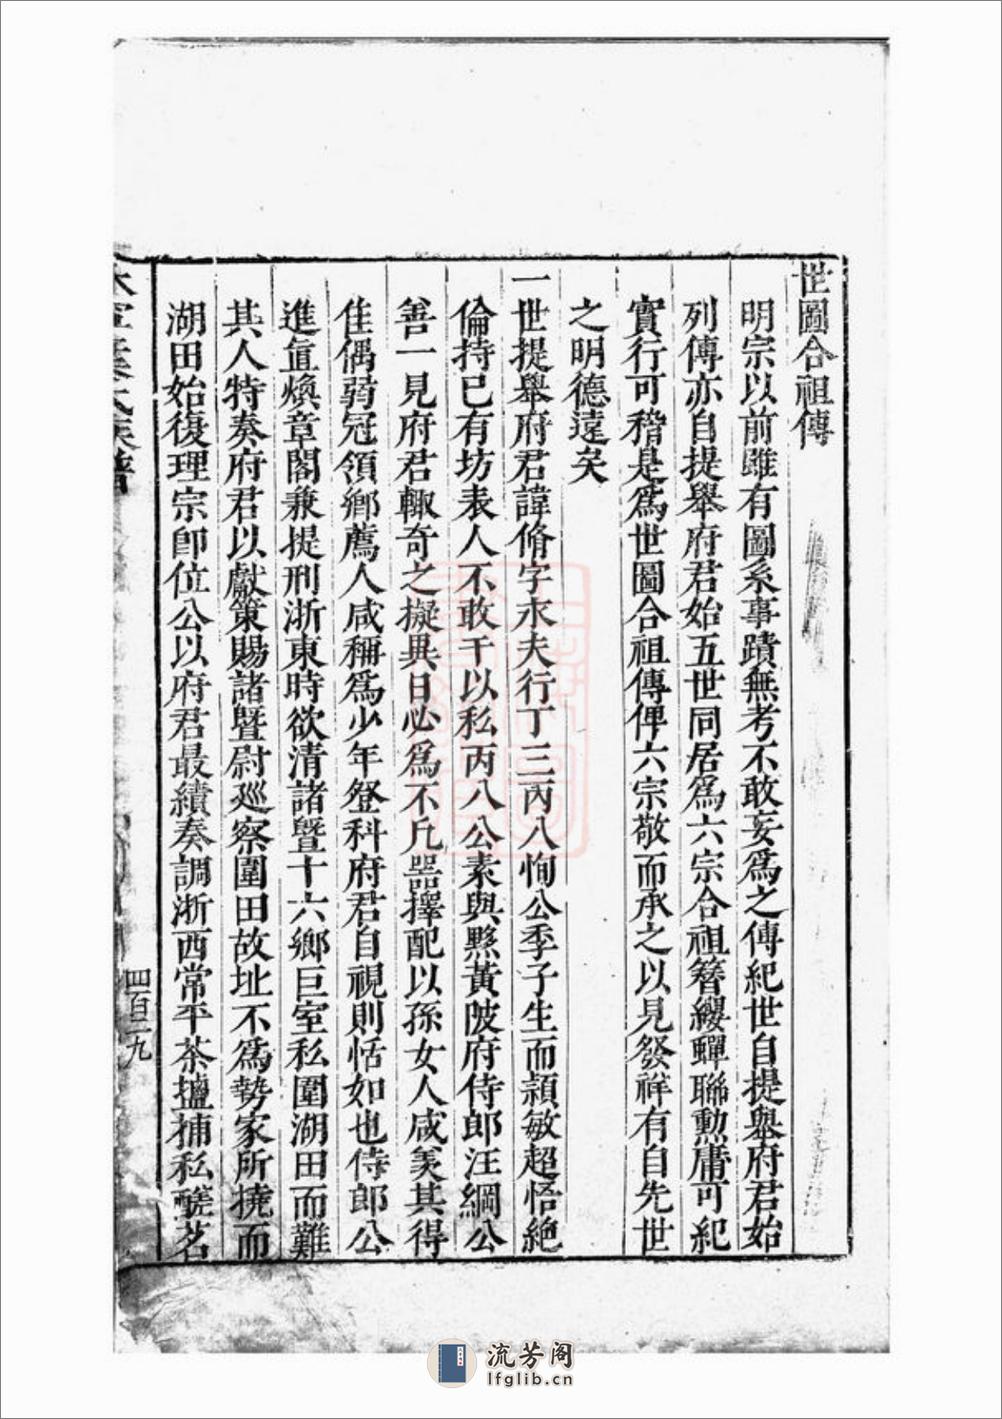 世圖合祖傳
明宗以前雖有圖系事蹟無考不敢妄爲之傳紀世自提舉府君始
列傳亦自提舉府君始五世同居爲六宗合祖簪纓蟬聯勲庸可紀
實行可稽是爲世圖合祖傳俾六宗敬而承之以見發祥有自先世
之明德遠矣
一世提舉府君諱脩字永夫行丁三丙八恂公季子生而頴敏超悟絶
倫持已有坊表人不敢干以私丙八公素與黟黃陂府侍郎汪綱公
善一見府君輙奇之擬異日必爲不凡器擇配以孫女人咸羡其得
佳偶弱冠領鄉薦人咸稱爲少年登科府君自視則恬如也侍郎公
進直煥章閣兼提刑浙東時欲清諸暨十六鄉巨室私圍湖田而難
其人特奏府君以獻策賜諸暨尉廵察圍田故址不爲勢家所撓而
湖田始復理宗卽位公以府君最績奏調浙西常平茶鹽捕私醝茗
四百二九
流芳阁
lfglib.cn